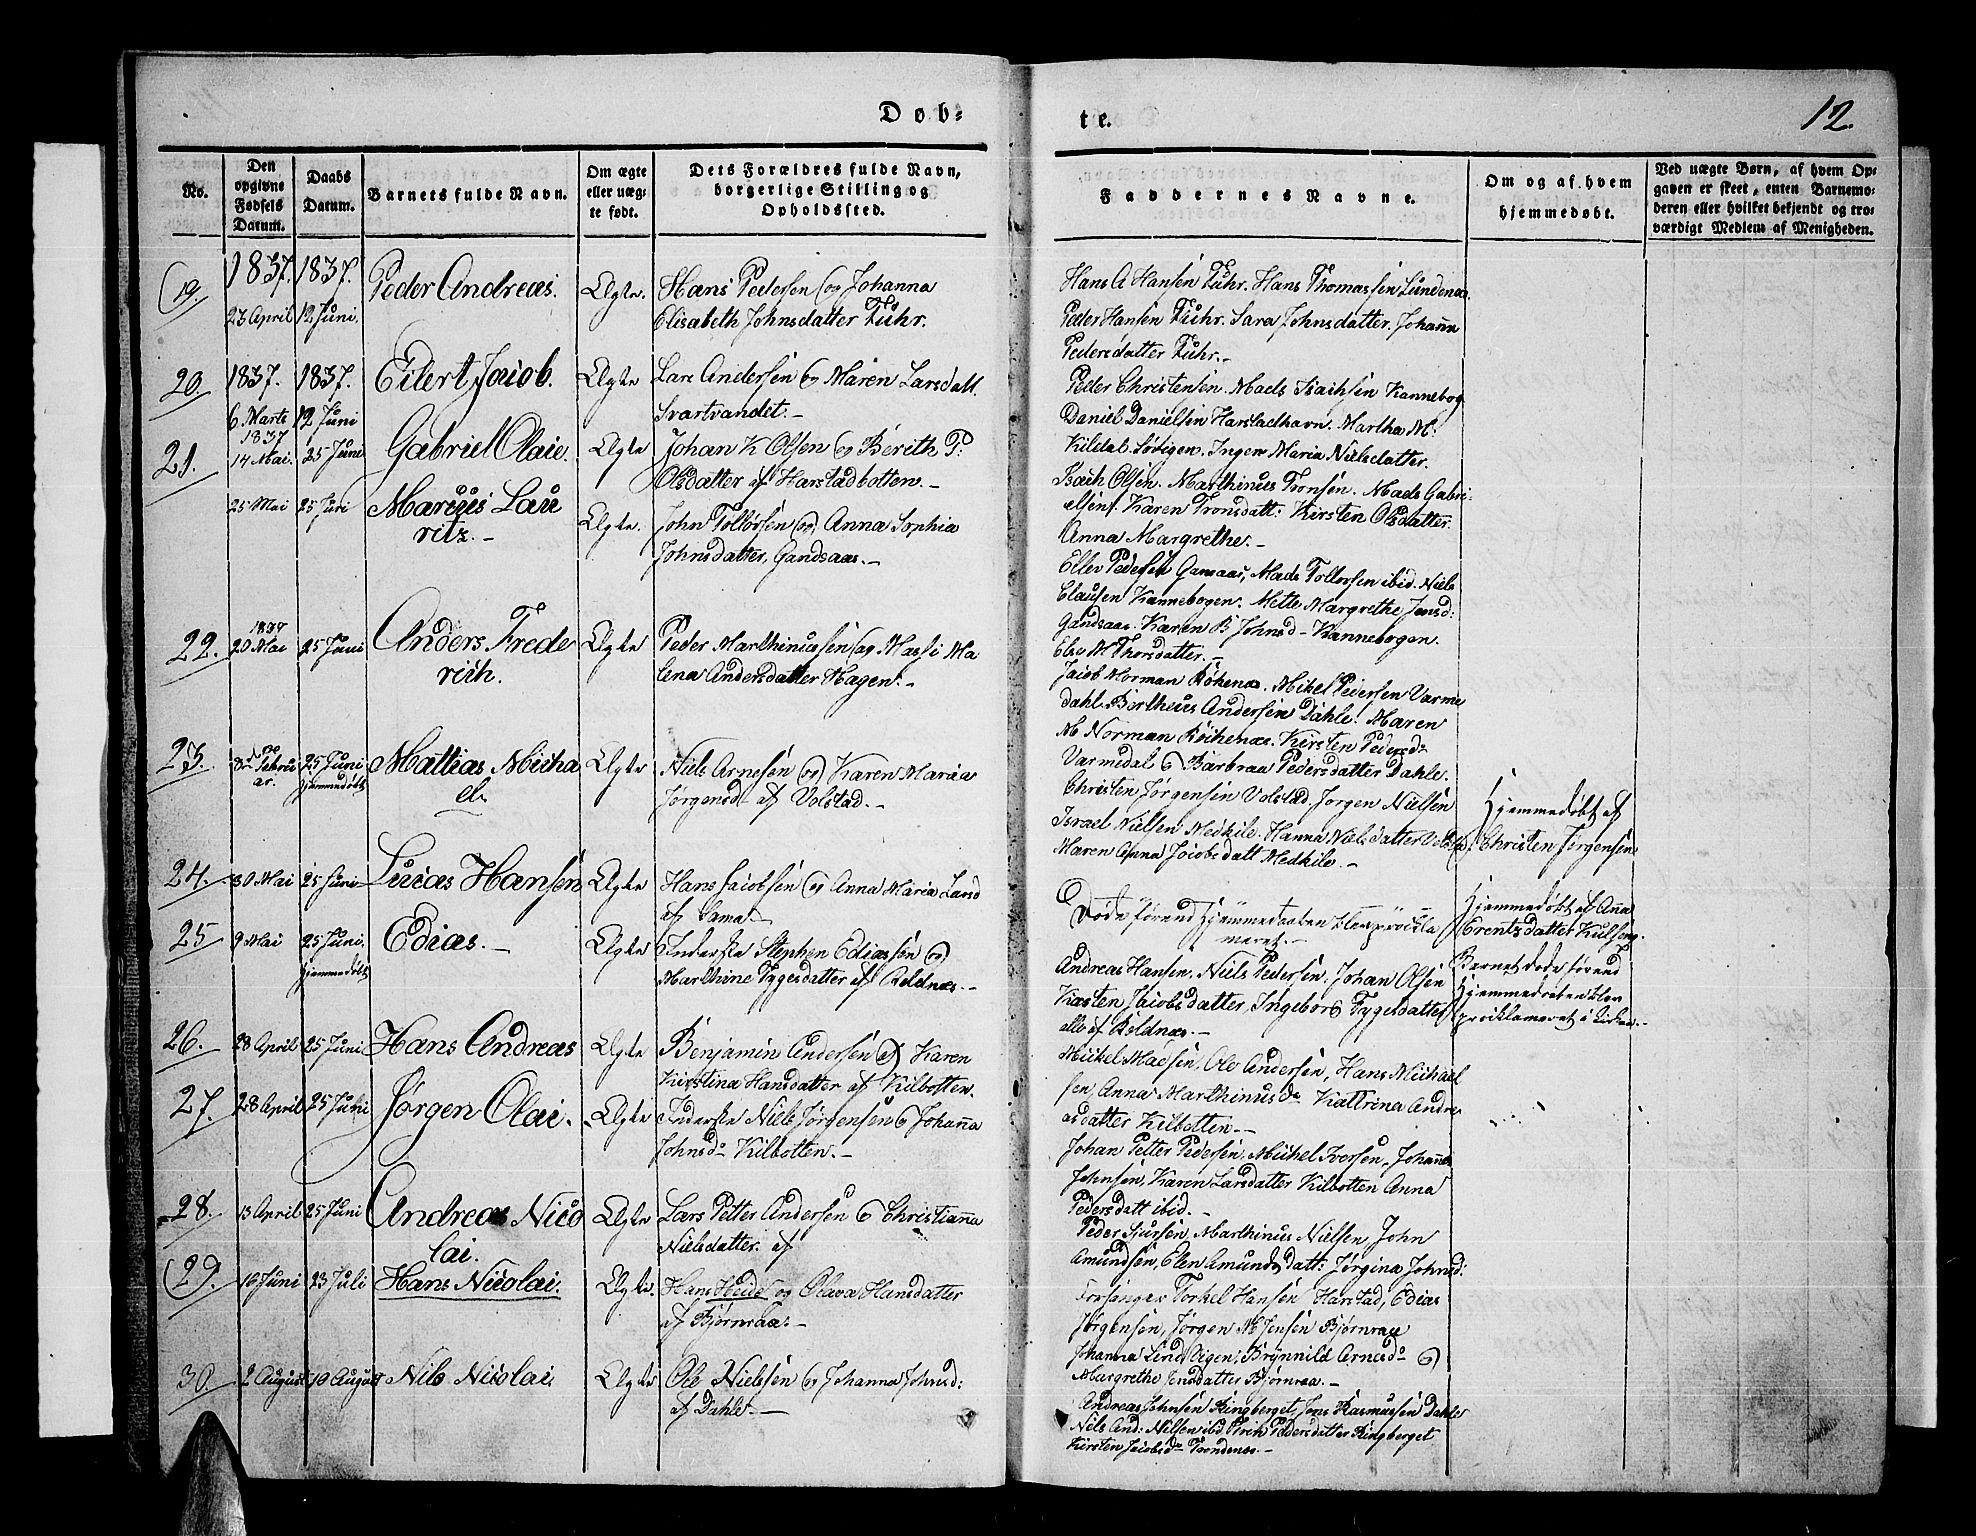 Døb-
te.
12.
No.
Den opgivne Fødsels Datum.
Daabs Datum.
Barnets fulde Navn.
Om ægte eller uægte født.
Dets Forældres fulde Navn, borgerlige Stilling og Opholdssted.
Faddernes Navne.
Om og af hvem hjemmedøbt.
Ved uægte Børn, af hvem Opgaven er skeet, enten Barnemoderen eller hvilket bekjendt og troværdigt Medlem af Menigheden.
19. 1837. 23 April 1837. 12 Juni. Peder Andreas. Ægte. Hans Pedersen og Johanna
Elisabeth Johnsdatter Fuhr.
Hans A Hansen Fuhr. Hans Thomassen Lundenes.
Peder Hansen Fuhr. Sara Johnsdatter. Johanna
Pedersdatter Fuhr.
20. 1837. 6 Marts 1837. 12 Juni Eilert Jacob. Ægte Lars Andersen og Maren Larsdatt.
Svartvandet.
Peder Christensen. Mads Isachsen Kannebog
Daniel Danielsen Harstadhavn. Martha M.
Kildal. Inger Maria Nielsdatter.
21. 1837 14 Mai. 25 Juni Gabriel Olaie. Ægte Johan K Olsen og Berith P:
Olsdatter af Harstadbotten.
Isach Olsen. Marthinus Tronsen. Mads Gabri-
elsen. Karen Tronsdatt: Kirsten Olsdatter.
Anna Margrethe.
25 Mai 25 Juni Marius Lau
ritz. Ægte. John Tollorsen og Anna Sophia
Johnsdatter, Gandsaas.
Eller Pedersen Gansaas, Mads Tollorsen ibid. Niels
Clausen Kannebogen. Mette Margrethe Jensd:
Gandsaas. Karen B Johnsd. Kannebogen.
Else M Thorsdatter.
22. 1837 20 Mai 25 Juni Anders Frede
rich. Ægte Peder Marthinussen og Massi Ma
lena Andersdatter Hagen.
Jacob Norman Røkenæs. Mikel Pedersen Varme
dahl. Bertheus Andersen Dahle. Maren
M Norman Røchenæs. Kirsten Pedersd.
Varmedal og Barbraa Pedersdatter Dahle.
23. 8de Februar. 25 Juni hjemmedøbt Mattias Micha
el. Ægte Niels Arnesen og Karen Maria
Jørgensd. af Volstad.
Christen Jørgensen Volstad. Jørgen Nielsen
Israel Nielsen Medkile. Hanna Nielsdatter
Maren Anna Jacobsdatt Medkile.
Hjemmedøbt af
Christen Jørgensen
24. 30 Mai 25 Juni Lucas Hansen Ægte Hans Jacobsen og Anna Maria Larsd
af Sama
Døde førend Hjemmedaaben blev procla
meret.
Hjemmedøbt af Anna
25 9 Mai 25 Juni. hjemmedøbt Edias. Ægte Inderste Stephen Ediassen og
Marthine Tygesdatter af Aldnæs.
Andreas Hansen. Niels Pedersen. Johan Olsen
Kasten Jacobsdatter, Ingeborg Tygesdatter
alle af
Barnet døde førend
Hjemmedaaben blev
proclameret i Kirken.
26. 28 April 25 Juni Hans Andreas Ægte Benjamin Andersen og Karen
Kirstina Hansdatter af Kilbotten.
Mickel Madsen, Ole Andersen, Hans Michael
sen, Anna Marthinusda Kattrina Andre
asdatter Kilbotten.
27. 28 April 25 Juni Jørgen Olai. Ægte Inderste Niels Jørgensen og Johanna
Johnsd. Kilbotten.
Johan Petter Pedersen. Mickel Iversen, Johannes
Johnsen, Karen Larsdatter Kilbotten Anna
Pedersdatt ibid.
28. 13 April 25 Juni Andreas Nico
lai. Ægte Lars Petter Andersen og Christianna
Nielsdatter. af
Peder Sjursen, Marthinus Nielsen, John
Amundsen, Elen Amundsdatt: Jørgina Johnsd:
29. 10 Juni 23 Juli Hans Nicolai. Ægte. Hans Heide og Olava Hansdatter
af Bjørnraa.
Torkel Hansen Harstad, Edias
Jørgensen, Jørgen M Jensen Bjørnraae
Johanna Lind Vigen, Brynnild Arnesd. og
Margrethe Jensdatter Bjørnraa.
30. 2 August 10 August Nils Nicolai. Ægte Ole Nielsen og Johanna Johnsd:
af Dahle.
Andreas Johnsen Ringberget, Jens Rasmussen Dahle
Nils And: Nilsen ibid Pedersdatter Ringberget
Kirsten Jacobsd. Trondenæs.